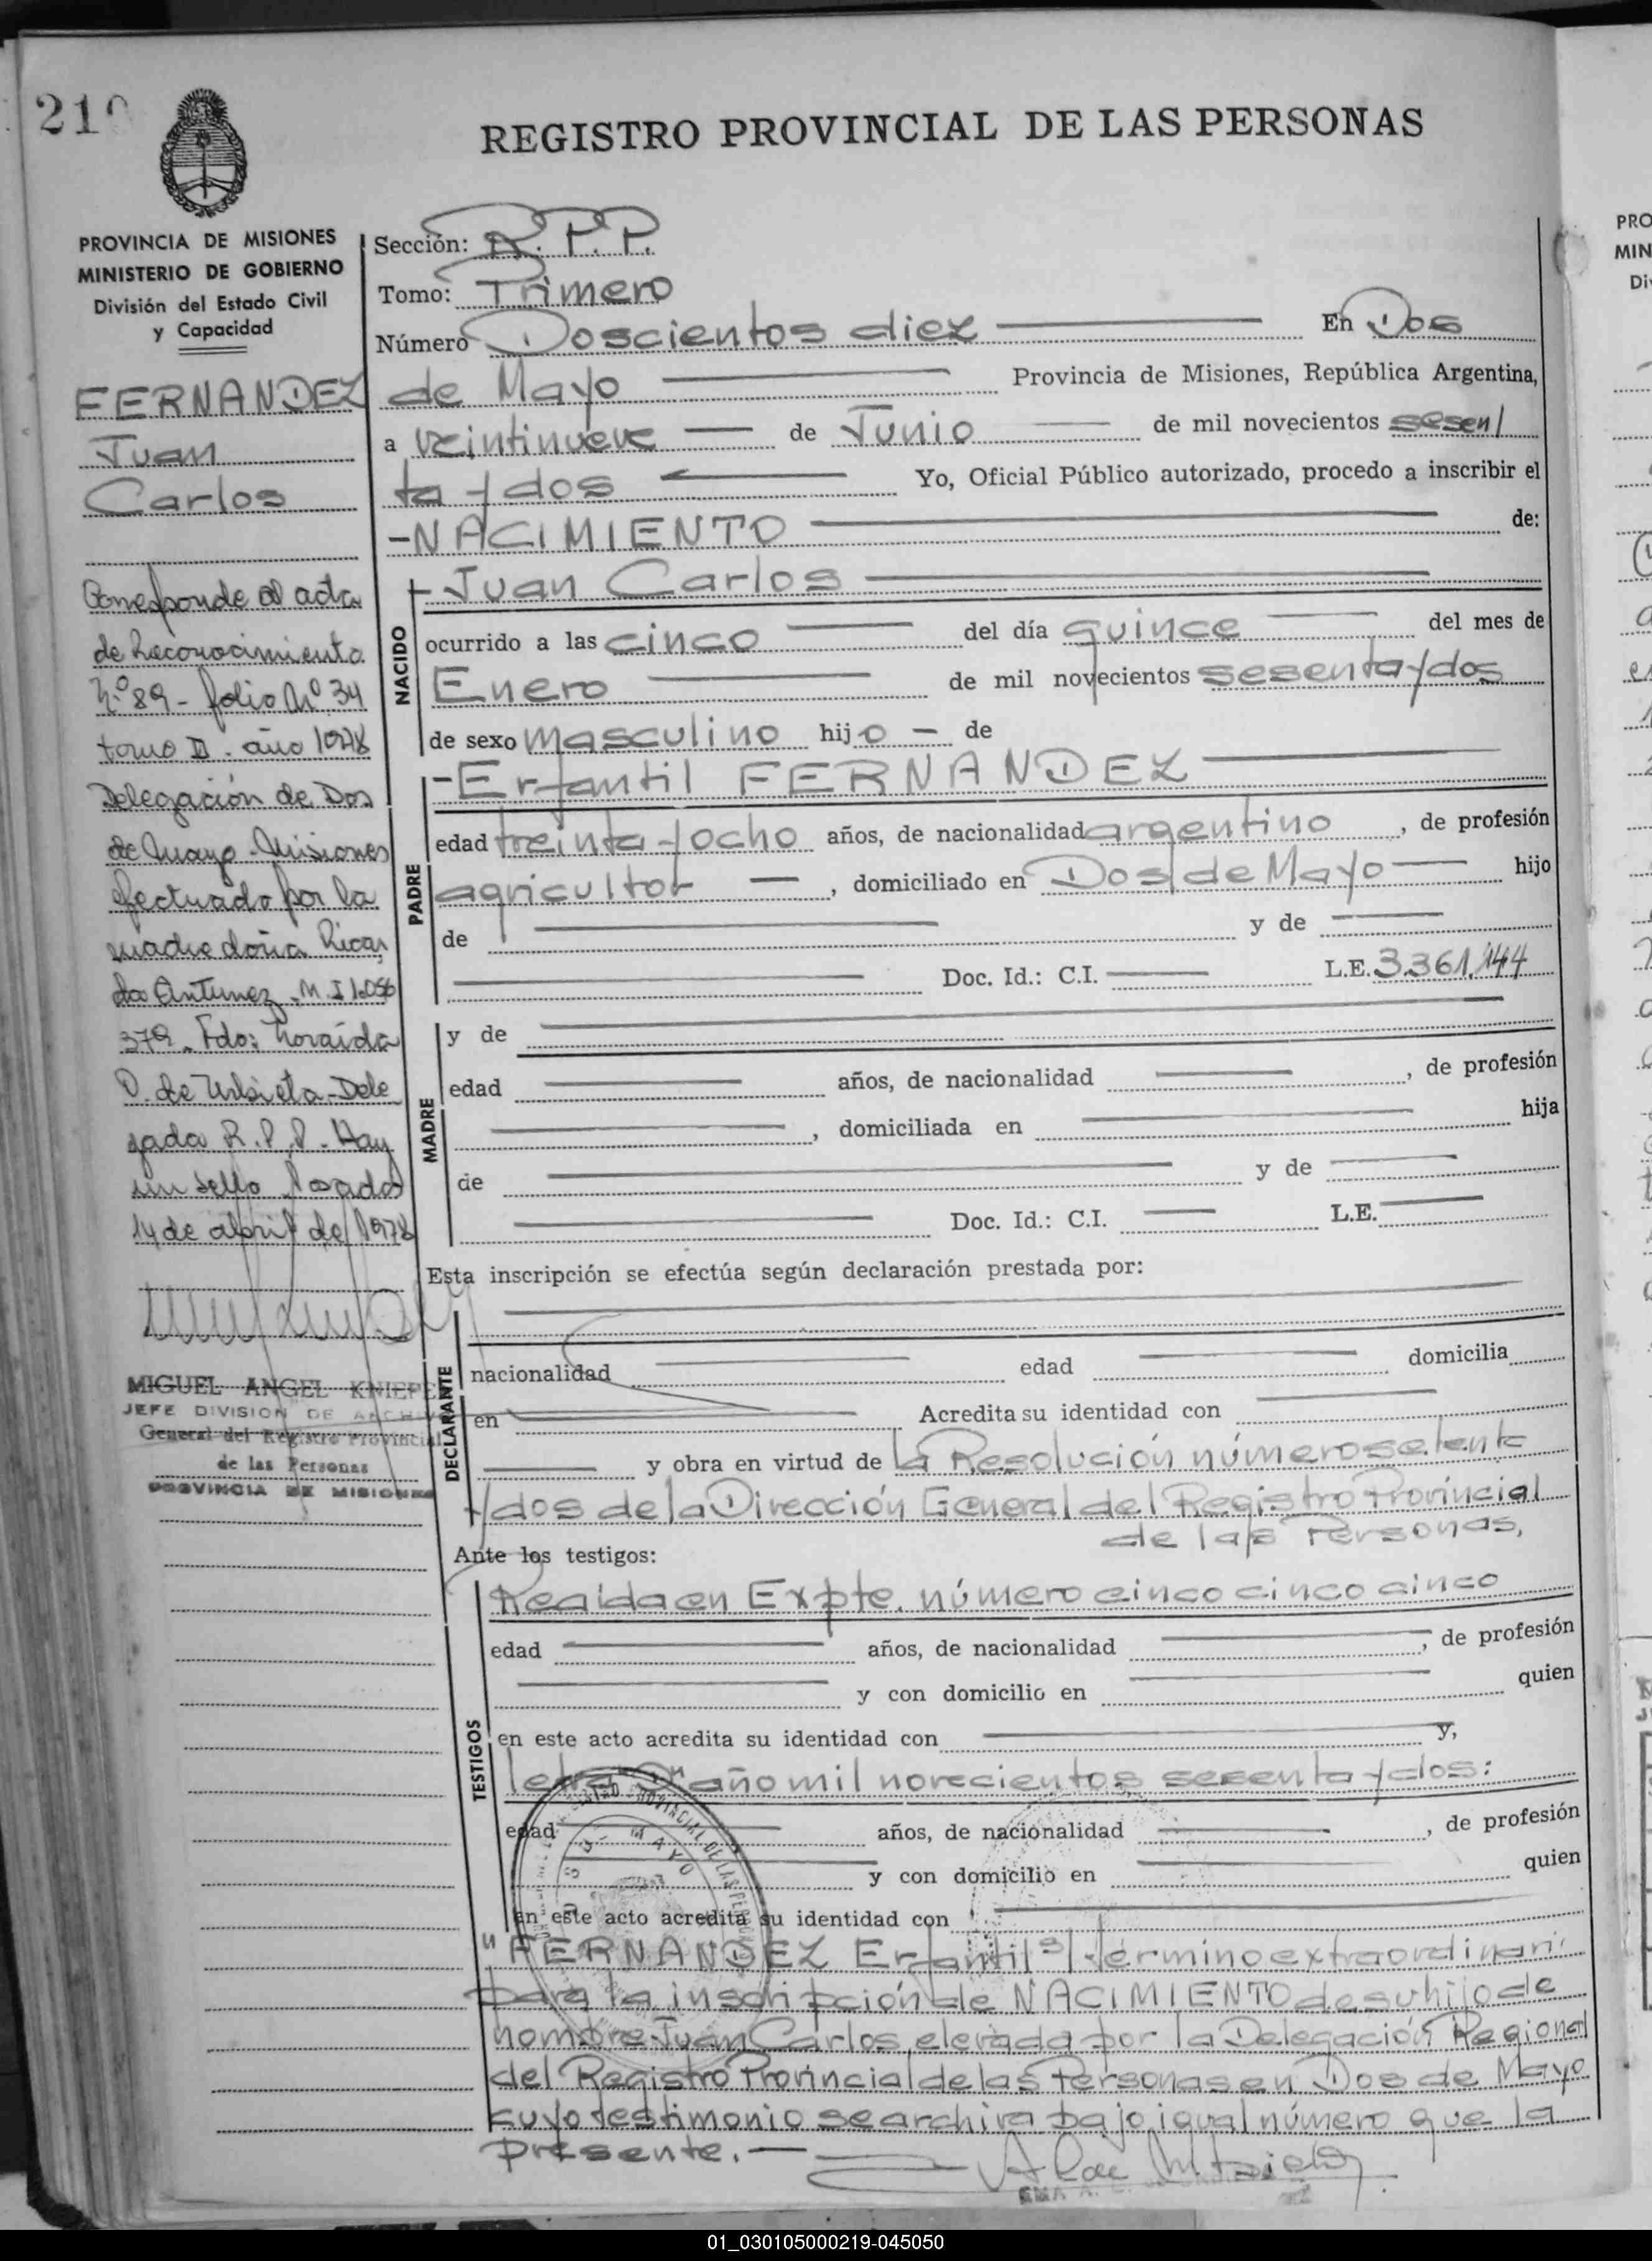 210
REGISTRO PROVINCIAL DE LAS PERSONAS
PROVINCIA DE MISIONES
MINISTERIO DE GOBIERNO
División del Estado Civil
y Capacidad
FERNANDEZ
Juan
Carlos
Corresponde al acta
de Reconocimiento
Nº 89 - folio Nº 34
tomo II - año 1978
Delegación de Dos
de Mayo - Misiones
efectuado por la
madre doña Ricar
da Antunez - M.I 1.056
379. Fdo: Zoraida
D. de Urbieta - Dele
gada R.P.P. Hay
un sello Posadas
14 de abril de 1978
MIGUEL ANGEL KNIEPE
JEFE DIVISION DE ARCHIVO
General del Registro Provincial
de las Personas
PROVINCIA DE MISIONES
Sección: R.P.P.
Tomo: Primero
Número Doscientos diez En Dos
de Mayo Provincia de Misiones, República Argentina,
a veintinueve de Junio de mil novecientos sesen/
ta y dos Yo, Oficial Público autorizado, procedo a inscribir el
-NACIMIENTO de:
NACIDO
- Juan Carlos
ocurrido a las cinco del día quince del mes de
Enero de mil novecientos sesenta y dos
de sexo masculino hijo - de
PADRE
-Erfantil FERNANDEZ
edad treinta y ocho años, de nacionalidad argentino, de profesión
agricultor, domiciliado en Dos de Mayo hijo
de y de
Doc. Id.: C.I. L.E. 3.361.144
MADRE
y de
edad años, de nacionalidad , de profesión
, domiciliada en hija
de y de
Doc. Id.: C.I. L.E.
Esta inscripción se efectúa según declaración prestada por:
DECLARANTE
nacionalidad edad domicilia
en Acredita su identidad con
y obra en virtud de la Resolución número setenta
y dos de la Dirección General del Registro Provincial
de las Personas,
Ante los testigos:
TESTIGOS
Recaida en Expte. número cinco cinco cinco
edad años, de nacionalidad , de profesión
y con domicilio en quien
en este acto acredita su identidad con y,
letra año mil novecientos sesenta y dos:
edad años, de nacionalidad , de profesión
y con domicilio en quien
en este acto acredita su identidad con
"FERNANDEZ Erfantil s/ término extraordinari
para la inscripción de NACIMIENTO de su hijo de
nombre Juan Carlos, elevada por la Delegación Regional
del Registro Provincial de las Personas en Dos de Mayo
cuyo testimonio se archiva bajo igual número que la
presente.-
01_030105000219-045050